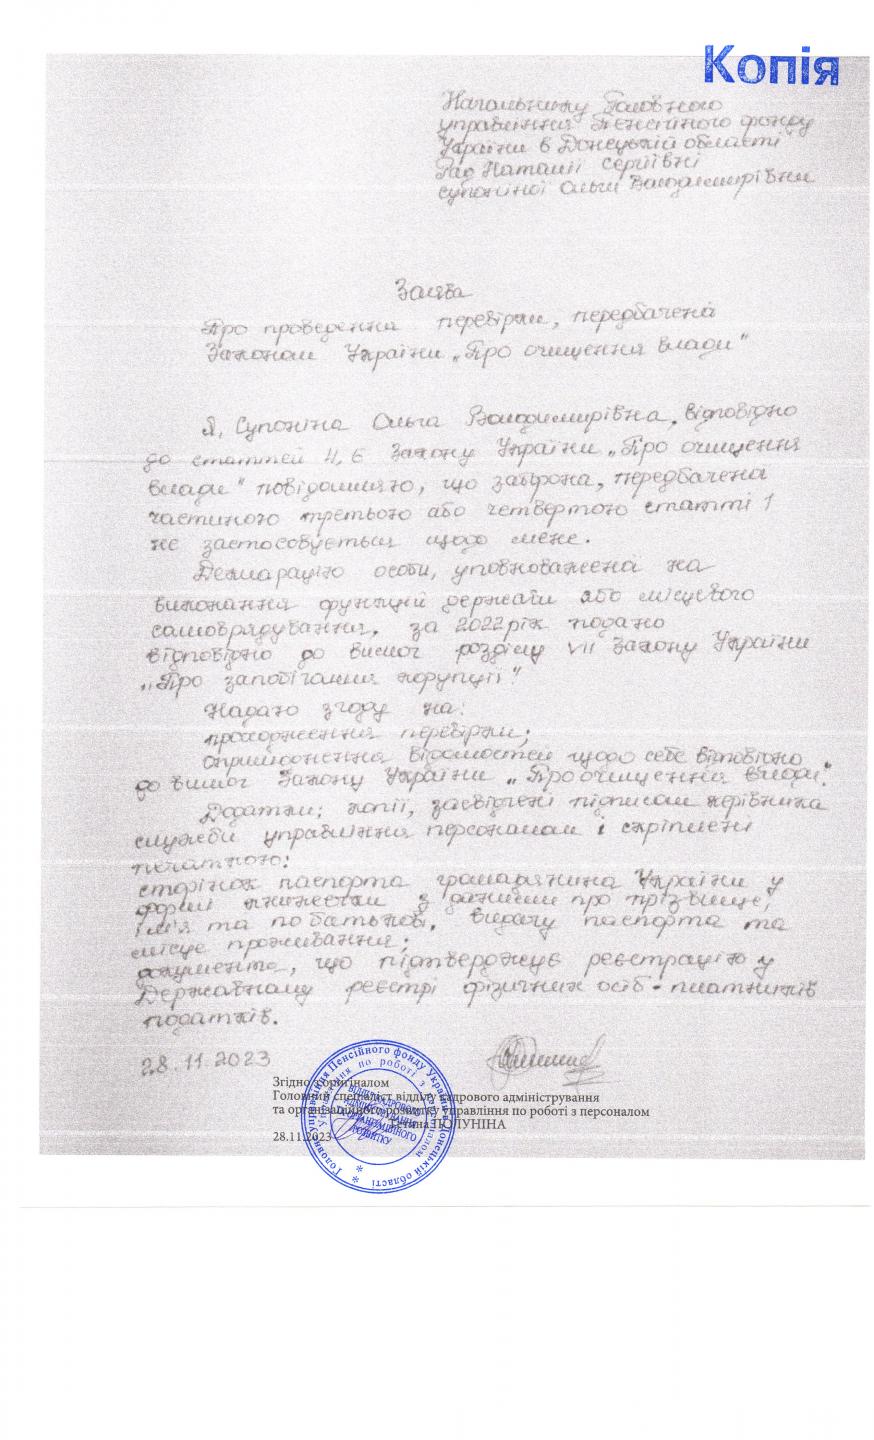 Копія
Начальнику Головного
управління Пенсійного фонду
України в Донецькій області
Рад Наталії Сергіївні
Супоніної Ольги Володимирівни
Заява
Про проведення перевірки, передбачена
Законом України „Про очищення влади"
Я, Супоніна Ольга Володимирівна, відповідно
до статтей 4, 6 Закону України „Про очищення
влади" повідомляю, що заборона, передбачена
частиною третьою або четвертою статті 1
не застосовується щодо мене.
Декларацію особи, уповноваженої на
виконання функцій держави або місцевого
самоврядування, за 2022 рік подано
відповідно до вимог розділу VII Закону України
„Про запобігання корупції"
Надаю згоду на:
проходження перевірки;
оприлюднення відомостей щодо себе відповідно
до вимог Закону України „Про очищення влади".
Додатки: копії, засвідчені підписом керівника
служби управління персоналом і скріплені
печаткою:
сторінок паспорта громадянина України у
формі книжечки з даними про прізвище,
ім'я та по батькові, видачу паспорта та
місце проживання;
документа, що підтверджує реєстрацію у
Державному реєстрі фізичних осіб-платників
податків.
28.11.2023
Згідно з оригіналом
Головний спеціаліст відділу кадрового адміністрування
та організаційного розвитку управління по роботі з персоналом
Тетяна ПОЛУНІНА
28.11.2023
Головне управління Пенсійного фонду України в Донецькій області
Управління по роботі з персоналом
ВІДДІЛ КАДРОВОГО
АДМІНІСТРУВАННЯ
ТА ОРГАНІЗАЦІЙНОГО
РОЗВИТКУ